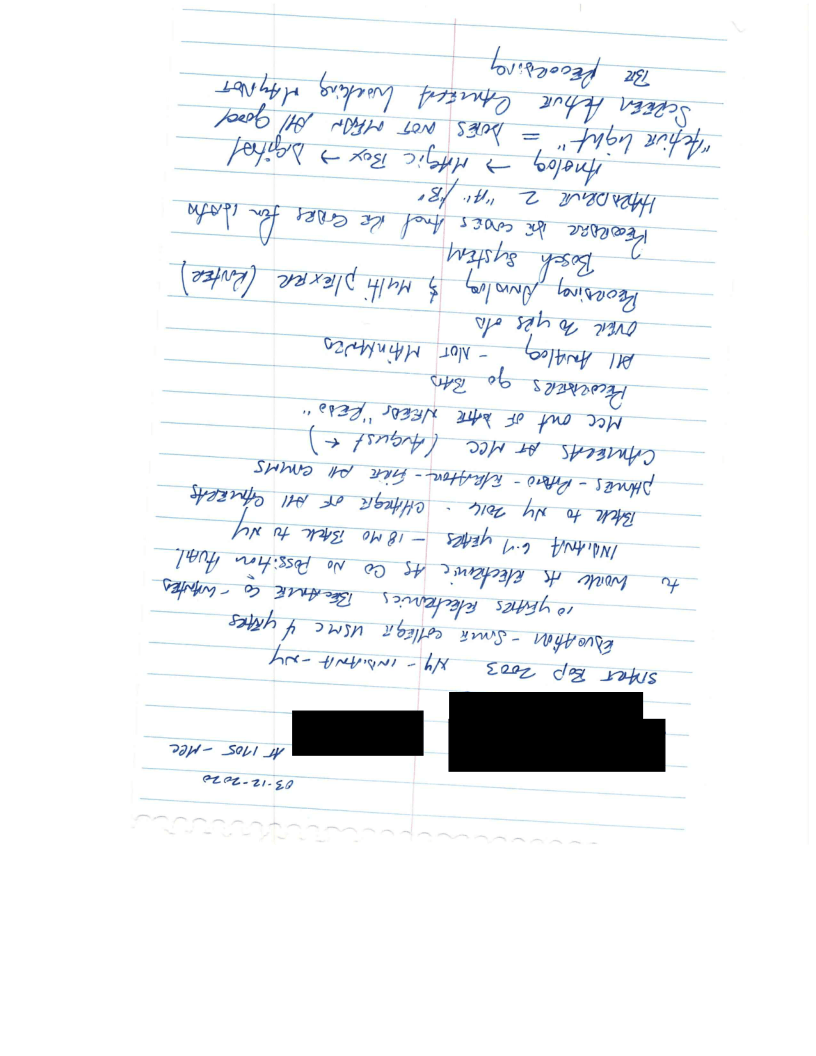 03-12-2020
AT 1705 - MCC
START BOP 2003 NY - INDIANA - NY
EDUCATION - SOME COLLEGE USMC 4 YEARS
10 YEARS ELECTRONICS BECAME CO - WANTED
TO WORK AS ELECTRONIC AS CO NO POSSITION AVAL.
INDIANA 6-7 YEARS - 18 MO BACK TO NY
BACK TO NY 2016. CHARGE OF All CAMERAS
PHONES - RADIO - - FIRE All COMMS
CAMERAS AT MCC (AUGUST ←)
MCC out OF DATE NEEDS "REDO"
RECORDERS go BAD
All ANAlog - NOT MAINTAINED
OVER 20 YRS old
RECORDING ANAlog & Multi plEXER (ROUTER)
Bosch SYSTEM
RECORDER DE CODES And RE CODES for DATA
HARDDRIVE 2 "A"/"B"
ANAlog → MAGIC Box → Digital
"Active Light" = DOES NOT MEAN All good
SCREEN Active CAMERA Working MAY NOT
BE RECORDING